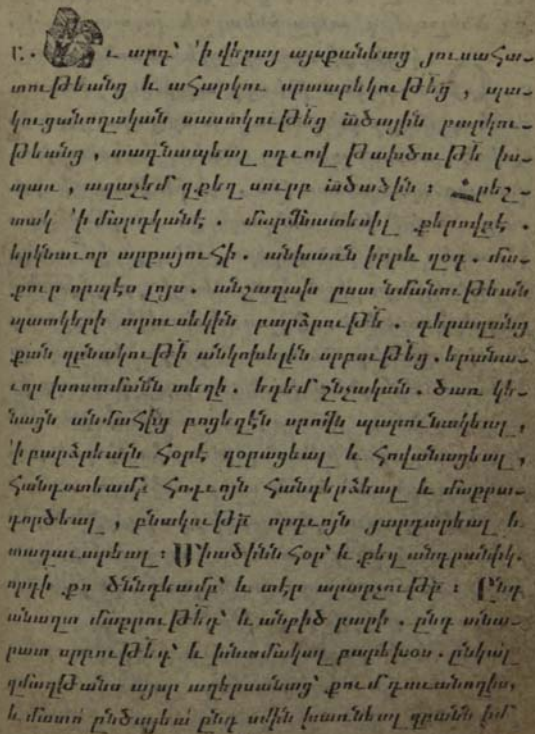 Բ. Եւ արդ՝ ՚ի վերայ այսքանեաց յուսահա-
տութեանց և ահարկու սրտաբեկութեց , պա-
կուցանողական սաստկութեց ածային բարկու-
թեանց , տագնապեալ ոգւով թախծութե իս-
պառ , աղաչեմ զքեզ սուրբ ածածին ։ Հրեշ-
տակ ՚ի մարդկանէ . մարմնատեսիլ քերովբէ .
երկնաւոր արքայուհի . անխառն իբրև զօդ . մա-
քուր որպէս լոյս . անշաղախ ըստ նմանութեան
պատկերի արուսեկին բարձրութե . գերազանց
քան զբնակութի անկոխելէն սրբութեց . երանա-
ւոր խոստմանն տեղի . եդեմ շնչական . ծառ կե-
նացն անմահից բոցեղէն սրովն պարունակեալ ,
՚ի բարձրելոյն հօրէ զօրացեալ և հովանացեալ ,
հանգստեամբ հոգւոյն հանդերձեալ և մաքրա-
գործեալ , բնակութի որդւոյն յարդարեալ և
տաղաւարեալ ։ Միածինն հօր՝ և քեզ անդրանիկ .
որդի քո ծննդեամբ՝ և տէր արարչութի ։ Ընդ
անաղտ մաքրութեդ՝ և անբիծ բարի . ընդ անա-
րատ սրբութեդ՝ և խնամակալ բարեխօս . ընկալ
զմաղթանս այսր աղերսանաց՝ քում դաւանողիս ,
և մատո ընծայեա՛ ընդ սմին խառնեալ զբանն իմ